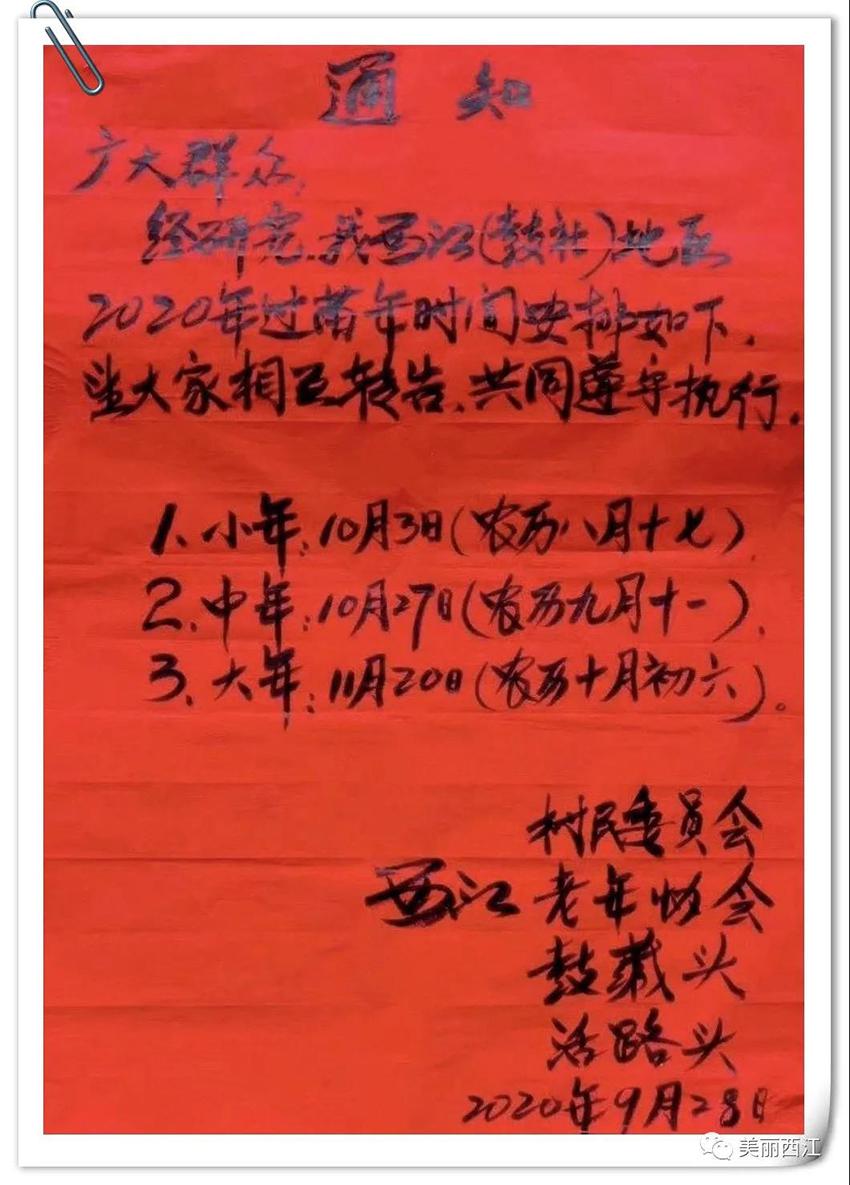 通知
广大群众,
经研究.我西江(鼓社)地区
2020年过苗年时间安排如下,
望大家相互转告、共同遵守执行.
1、小年:10月3日(农历八月十七)
2、中年:10月27日(农历九月十一).
3、大年:11月20日(农历十月初六)。
村民委员会
西江 老年协会
鼓藏头
活路头
2020年9月28日
美丽西江